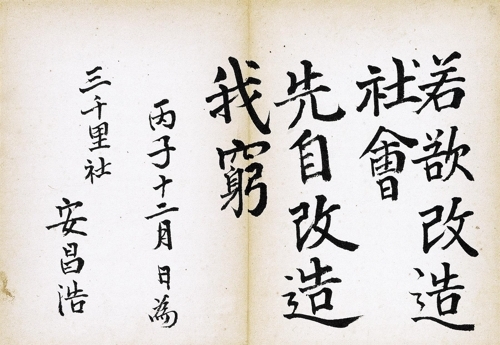 若欲改造
社會
先自改造
我窮
丙子十二月 日 為
三千里社
安昌浩